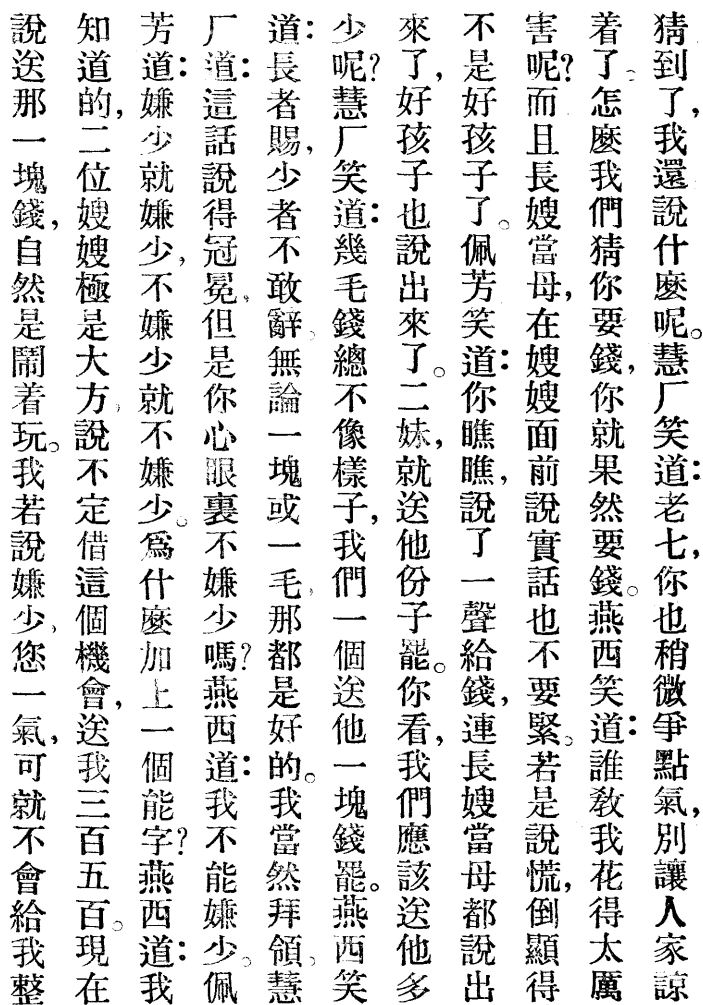 猜到了，我還說什麼呢。慧厂笑道：老七，你也稍微爭點氣，別讓人家諒
着了。怎麼我們猜你要錢，你就果然要錢。燕西笑道：誰敎我花得太厲
害呢？而且長嫂當母，在嫂嫂面前說實話也不要緊。若是說慌，倒顯得
不是好孩子了。佩芳笑道：你瞧瞧，說了一聲給錢，連長嫂當母都說出
來了，好孩子也說出來了。二妹，就送他份子罷。你看，我們應該送他多
少呢？慧厂笑道：幾毛錢總不像樣子，我們一個送他一塊錢罷。燕西笑
道：長者賜，少者不敢辭、無論一塊或一毛、那都是好的。我當然拜領、慧
厂道：這話說得冠冕、但是你心眼裏不嫌少嗎？燕西道：我不能嫌少。佩
芳道：嫌少就嫌少，不嫌少就不嫌少。爲什麼加上一個能字？燕西道：我
知道的，二位嫂嫂極是大方，說不定借這個機會，送我三百五百。現在
說送那一塊錢，自然是鬧着玩。我若說嫌少、您一氣，可就不會給我整